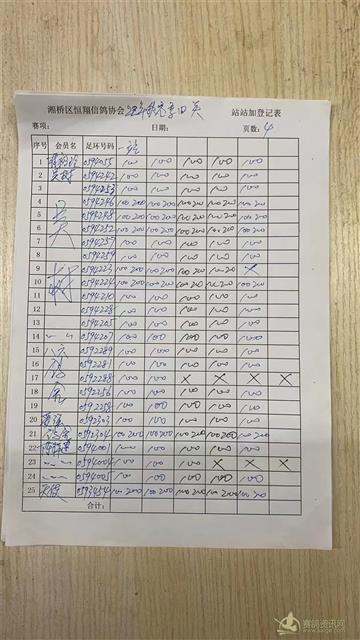 湘桥区恒翔信鸽协会 站站加登记表
赛项： 日期： 页数：4
序号 会员名 足环号码 一站
1 0594055 100 100 100 100 100
2 0594242 100 100 100 100 100
3 0594253 100 100 100 100 100
4 0594246 100 200 100 200 100 200 100 200 100 200
5 0594248 100 200 100 200 100 200 100 200 100 200
6 0594252 100 200 100 200 100 200 100 200 100 200
7 0594257 100 100 100 100 100
8 0594259 100 100 100 100 100
9 0594223 100 200 100 200 100 200 100 200 X
10 0594224 100 200 100 200 100 200 100 200 100 200
11 0594210 100 100 100 100 100
12 0594228 100 100 100 100 100
13 0594205 100 100 100 100 100
14 0594207 100 100 100 100 100
15 0592289 100 100 100 100 100
16 0592281 100 100 100 100 100
17 0592288 100 100 X X X X
18 0592256 100 100 100 100 100
19 0592258 100 100 100 100 100
20 0592303 100 100 100 100 100
21 0592304 100 200 100 200 100 200 100 200 100 200
22 0594001 100 100 100 100 100
23 0594004 100 100 100 X X X
24 0594005 100 100 100 100 100
25 0593454 100 200 100 200 100 200 100 200 100 200
合计：
赛鸽资讯网
www.saige.com